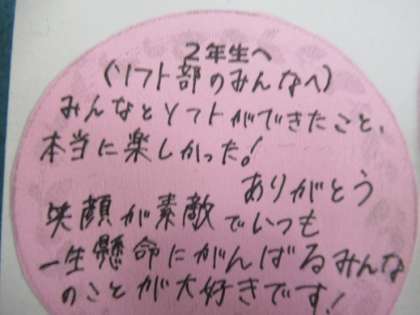 2年生へ
(ソフト部のみんなへ)
みんなとソフトができたこと、
本当に楽しかった!
ありがとう
笑顔が素敵でいつも
一生懸命にがんばるみんな
のことが大好きです!